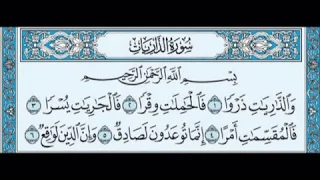 سُورَةُ الذَّارِيَاتِ
بِسْمِ اللَّهِ الرَّحْمَٰنِ الرَّحِيمِ
وَالذَّارِيَاتِ ذَرْوًا ۝١ فَالْحَامِلَاتِ وِقْرًا ۝٢ فَالْجَارِيَاتِ يُسْرًا ۝٣
فَالْمُقَسِّمَاتِ أَمْرًا ۝٤ إِنَّمَا تُوعَدُونَ لَصَادِقٌ ۝٥ وَإِنَّ الدِّينَ لَوَاقِعٌ ۝٦